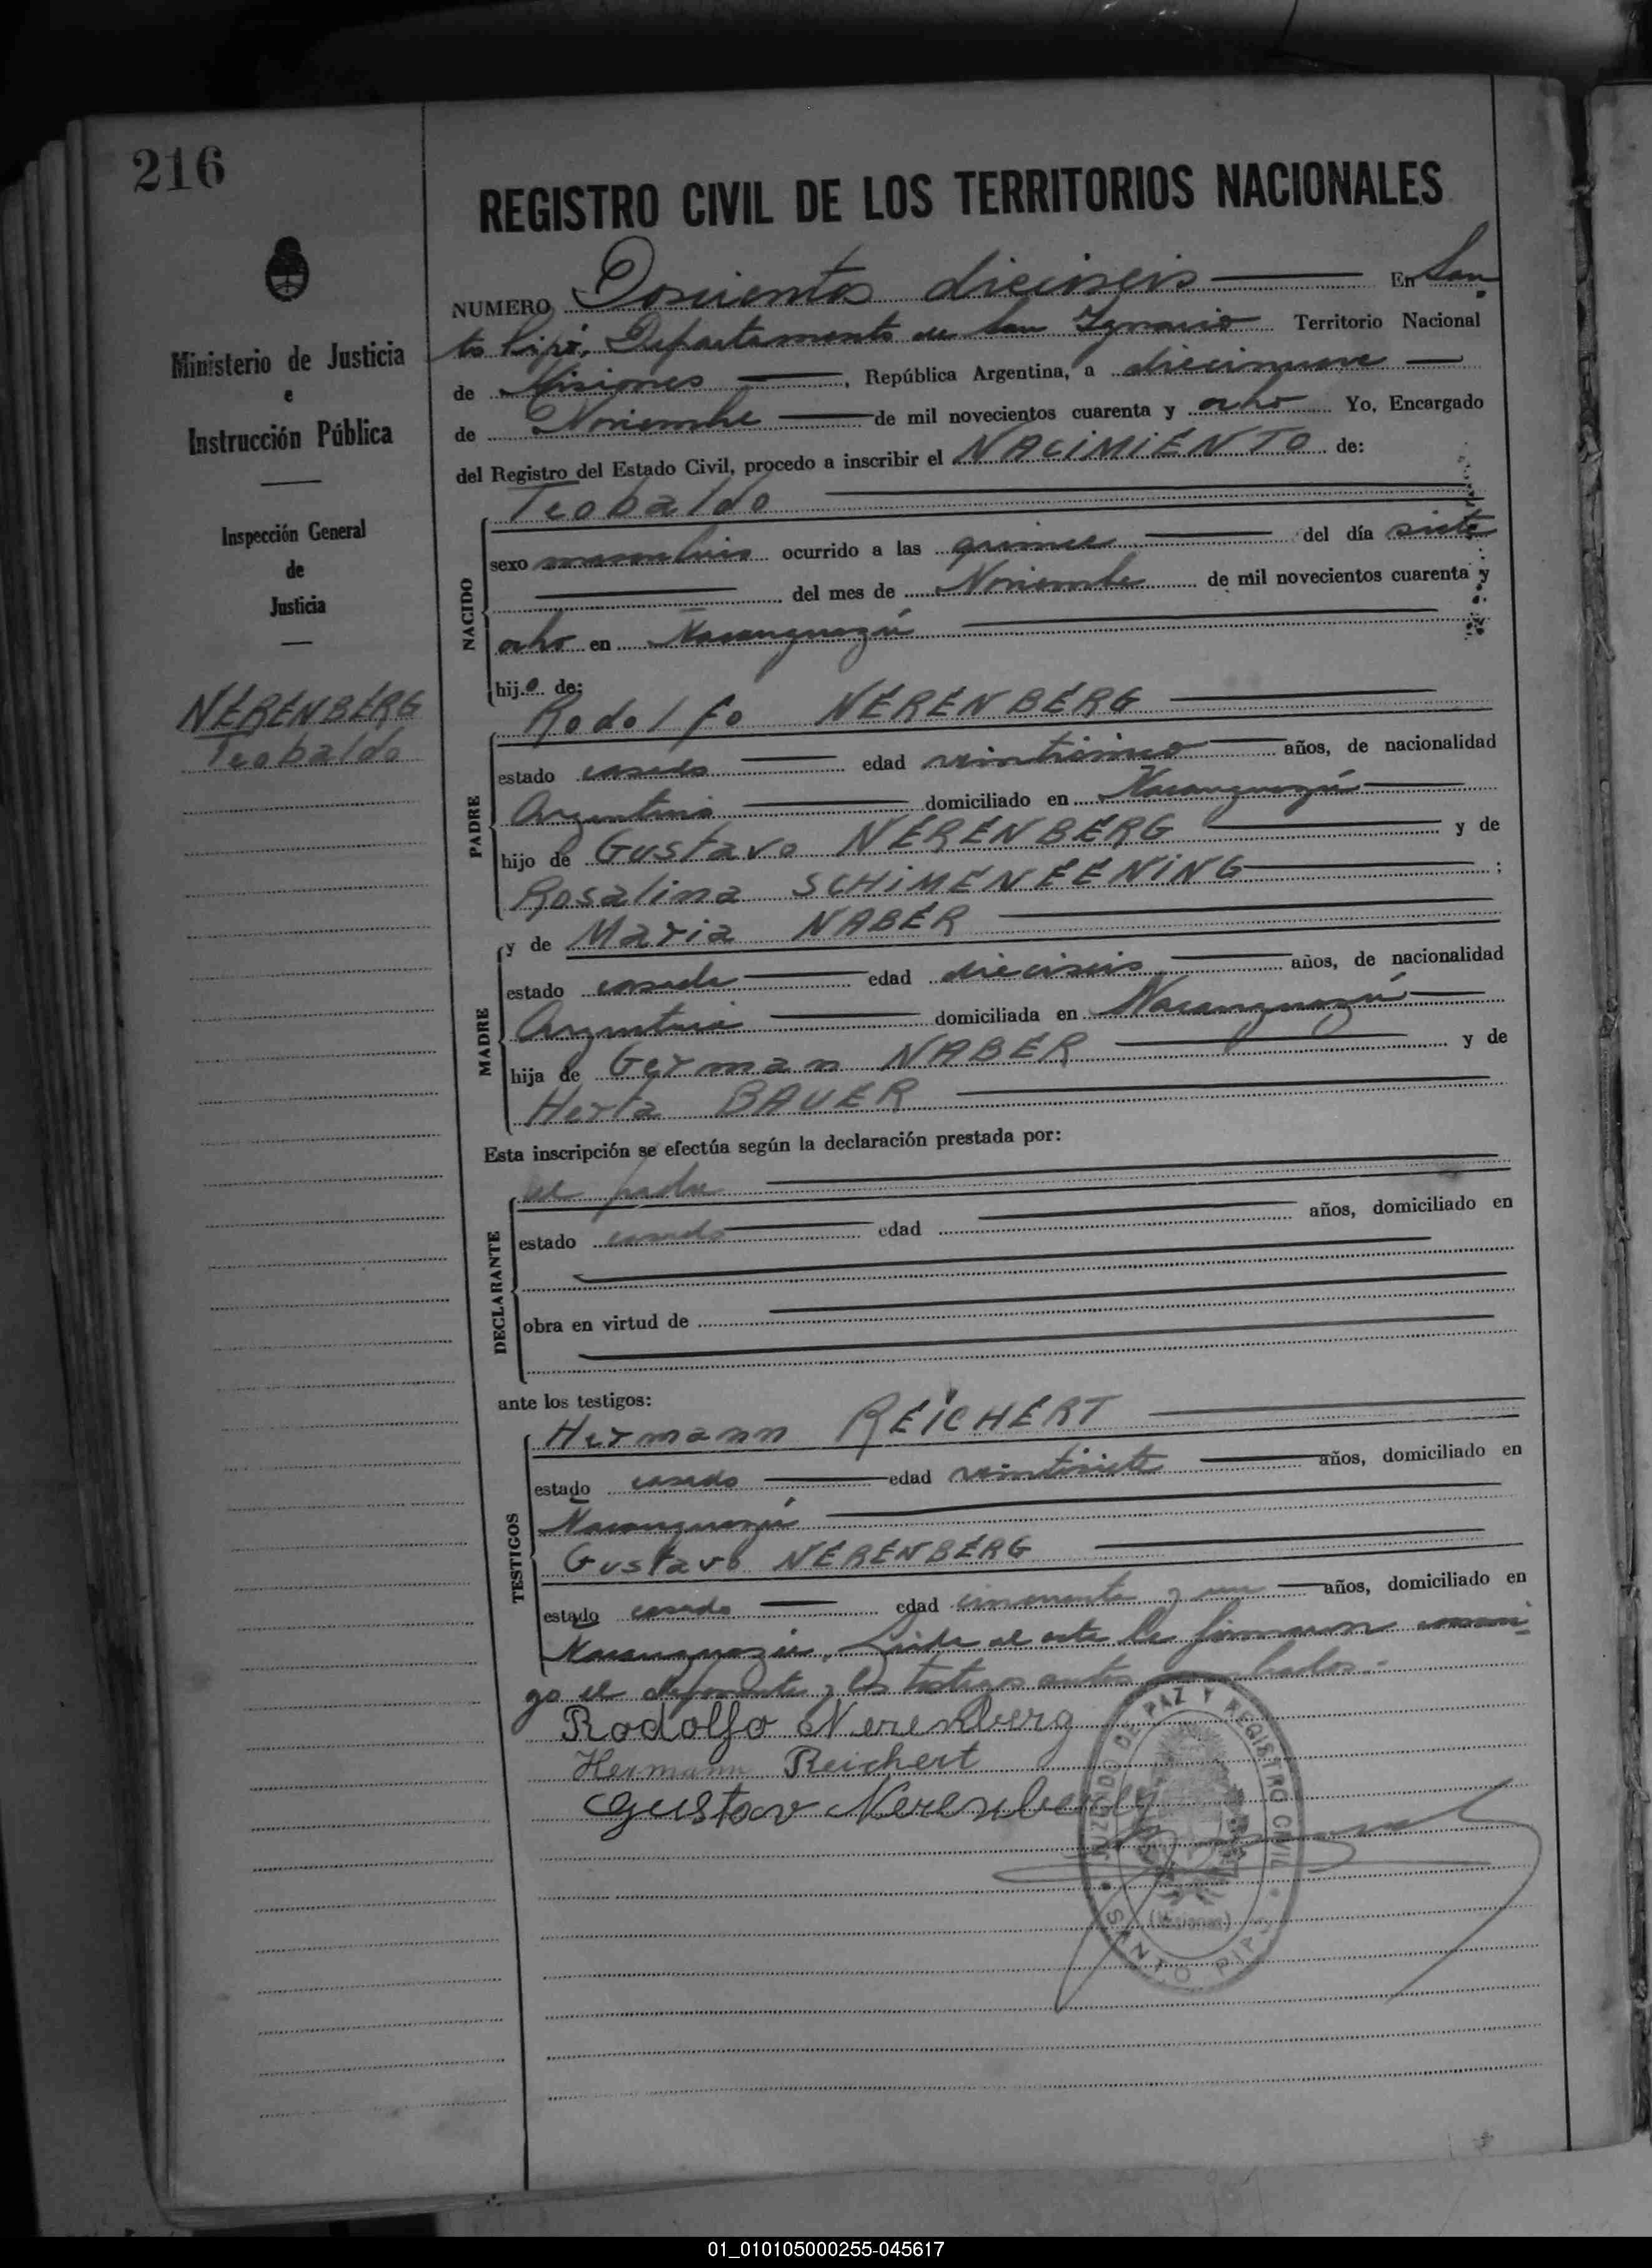 216
REGISTRO CIVIL DE LOS TERRITORIOS NACIONALES
Ministerio de Justicia
e
Instrucción Pública
Inspección General
de
Justicia
NERENBERG
Teobaldo
NUMERO Doscientos dieciseis En San
to Pipó, Departamento de San Ignacio Territorio Nacional
de Misiones, República Argentina, a diecinueve
de Noviembre de mil novecientos cuarenta y ocho Yo, Encargado
del Registro del Estado Civil, procedo a inscribir el NACIMIENTO de:
NACIDO
Teobaldo
sexo masculino ocurrido a las quince del día siete
del mes de Noviembre de mil novecientos cuarenta y
ocho en Ñacanguazú
hijo de:
PADRE
Rodolfo NERENBERG
estado casado edad veinticinco años, de nacionalidad
Argentina domiciliado en Ñacanguazú
hijo de Gustavo NERENBERG y de
Rosalina SCHIMENEENING;
MADRE
y de Maria NABER
estado casada edad dieciseis años, de nacionalidad
Argentina domiciliada en Ñacanguazú
hija de German NABER y de
Herta BAUER
Esta inscripción se efectúa según la declaración prestada por:
DECLARANTE
el padre
estado casado edad años, domiciliado en
obra en virtud de
ante los testigos:
TESTIGOS
Hermann REICHERT
estado casado edad veintisiete años, domiciliado en
Ñacanguazú
Gustavo NERENBERG
estado casado edad cincuenta y un años, domiciliado en
Ñacanguazú. Leída el acta la firmaron conmi-
go el deponente y los testigos antes nombrados.-
Rodolfo Nerenberg
Hermann Reichert
Gustav Nerenberg
JUZGADO DE PAZ Y REGISTRO CIVIL
(Misiones)
SANTO PIPO
01_010105000255-045617